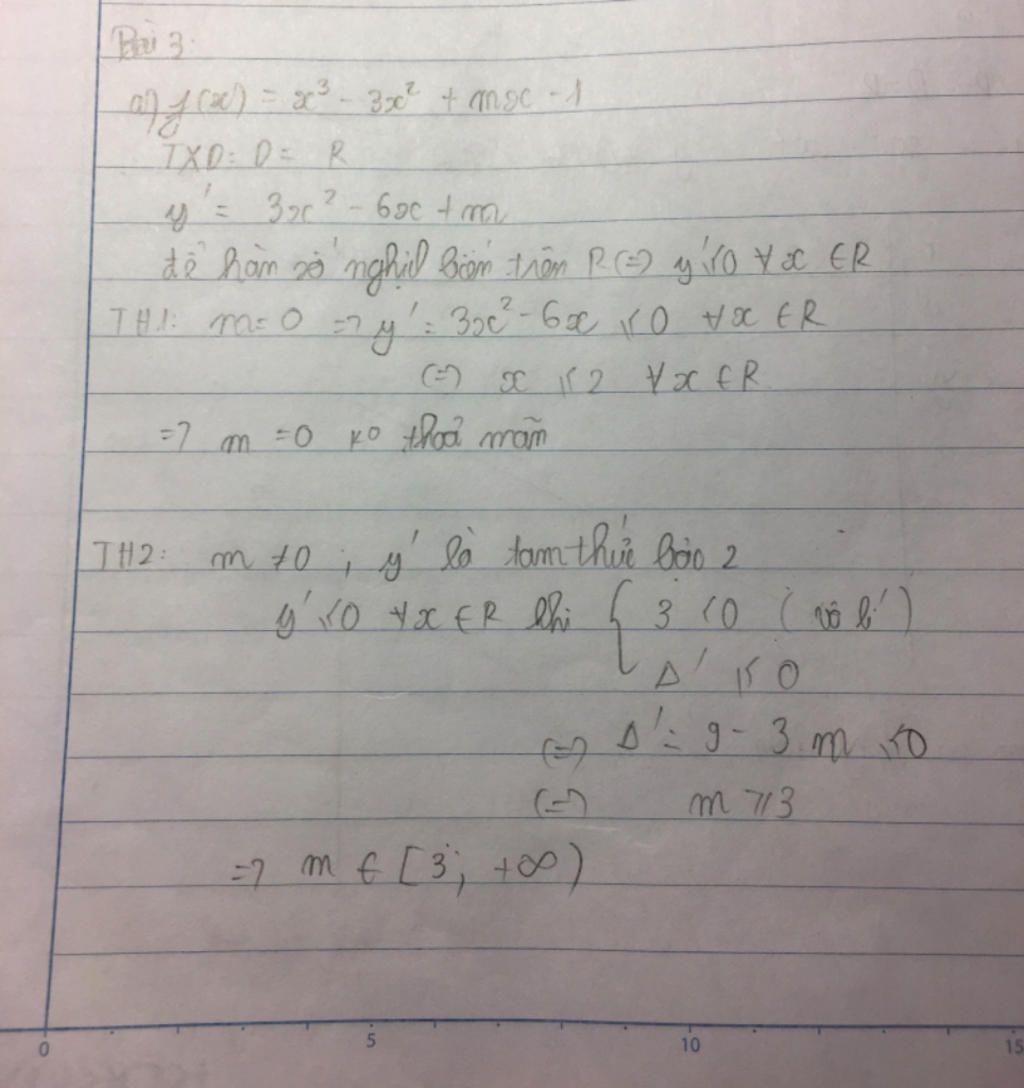 Bài 3:
a) f(x) = x³ - 3x² + mx - 1
TXD: D = R
y' = 3x² - 6x + m
để hàm số nghịch biến trên R <=> y' ≤ 0 ∀x ∈ R
TH1: m = 0 => y' = 3x² - 6x ≤ 0 ∀x ∈ R
<=> x ≤ 2 ∀x ∈ R
=> m = 0 ko thoả mãn
TH2: m ≠ 0 ; y' là tam thức bậc 2
y' ≤ 0 ∀x ∈ R khi { 3 < 0 (vô lí)
Δ' ≤ 0
<=> Δ' = 9 - 3m ≤ 0
<=> m ≥ 3
=> m ∈ [3; +∞)
0 5 10 15